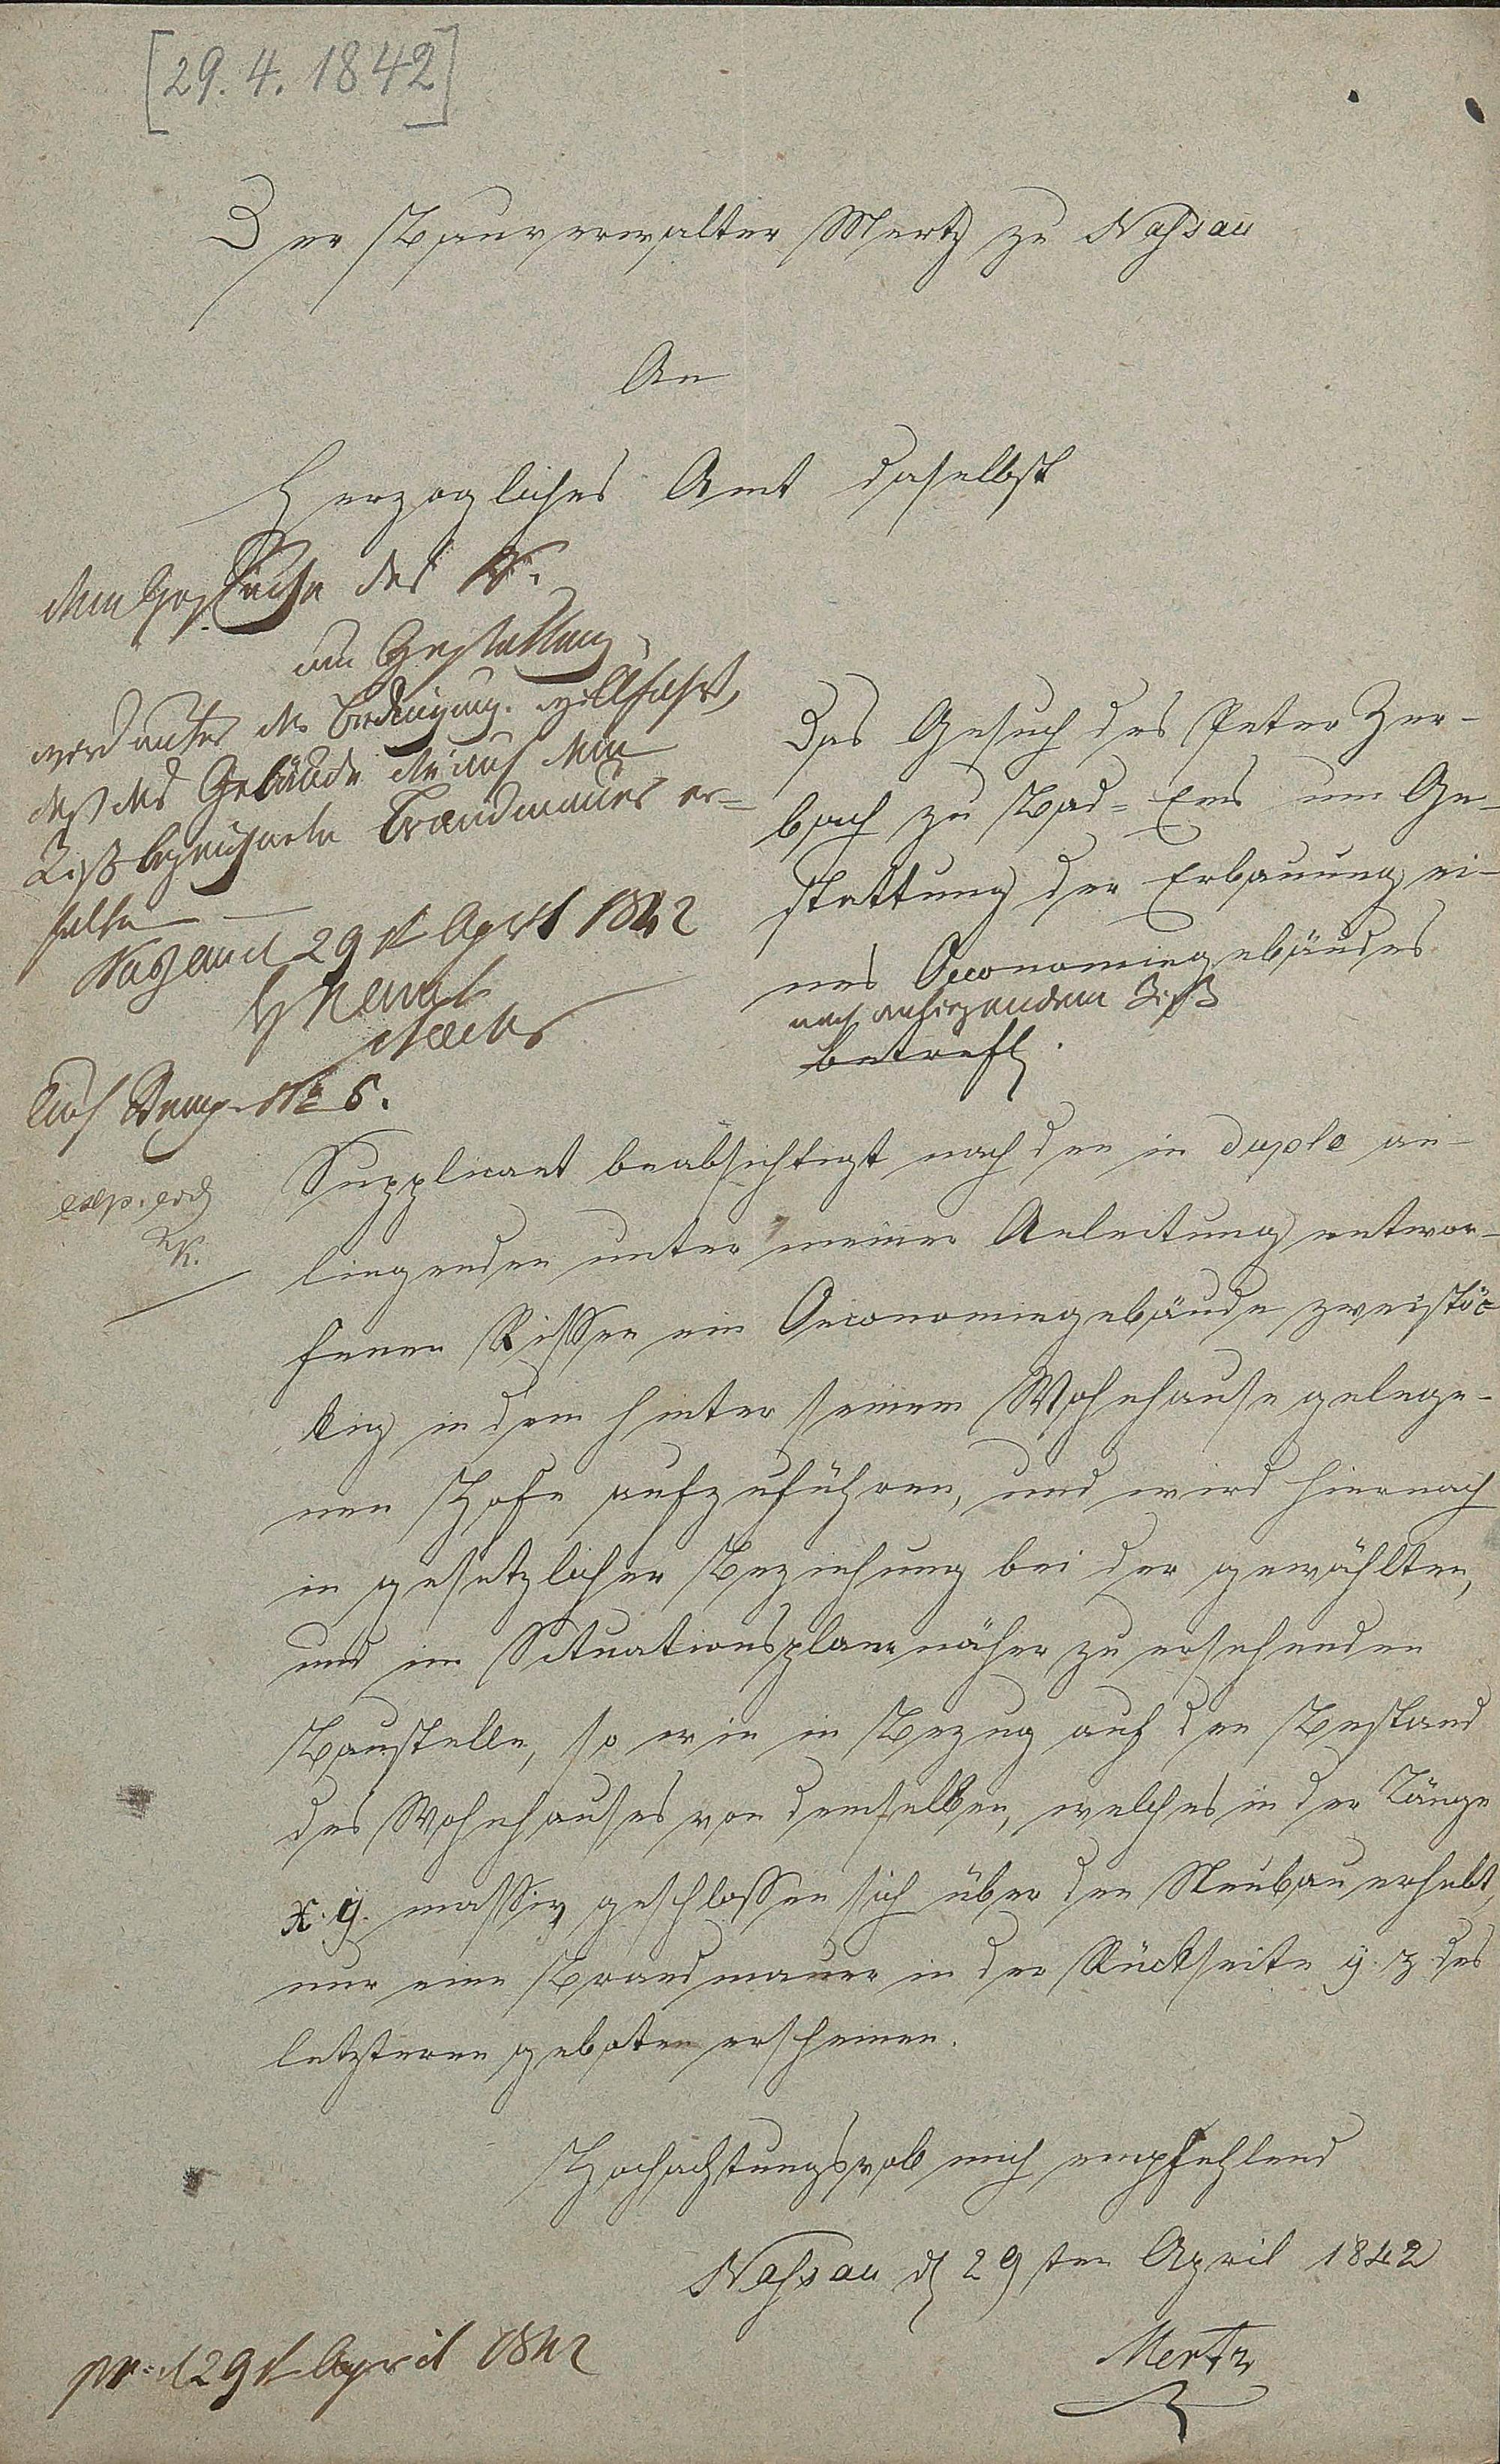 [29.4.1842]
Der Bauverwalter Mertz zu Nassau
An
Herzogliches Amt daselbst
Dem Gesuche des
um Gestattung
wird unter der Bedingung willfahrt,
daß das Gebäude die auf dem
Riß bezeichnete Brandmauer er-
halte
Nassau d 29t April 1842
Auf Stemp. No 6.
exp. eod
Das Gesuch des Peter Zer-
bach zu Bad-Ems um Ge-
stattung der Erbauung ei-
nes Oeconomiegebäudes
nach anliegendem Riß
betreff.
Supplicant beabsichtigt nach den in duplo an-
liegenden unter meiner Anleitung entwor-
fenen Rissen ein Oeconomiegebäude zweistöc
kig in dem hinter seinem Wohnhause gelege-
nen Hofe aufzuführen, und wird hiernach
in gesetzlicher Beziehung bei der gewählten,
und im Situationsplane näher zu ersehenden
Baustelle, so wie in Bezug auf den Bestand
des Wohnhauses von demselben, welches in der Länge
x. y. massiv geschlossen sich über den Neubau erhebt,
nur eine Brandmauer in der Rückseite y. z. des
letzteren geboten erscheinen.
Hochachtungsvoll mich empfehlend
Nassau d 29ten April 1842
Mertz
pr. d 29t April 1842